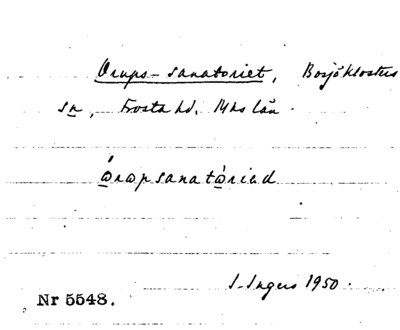 Orups-sanatoriet, Bosjöklosters
sn, Frosta hd. Mhs län.
órωpsanatòriəd
I. Ingers 1950.
Nr 5548.